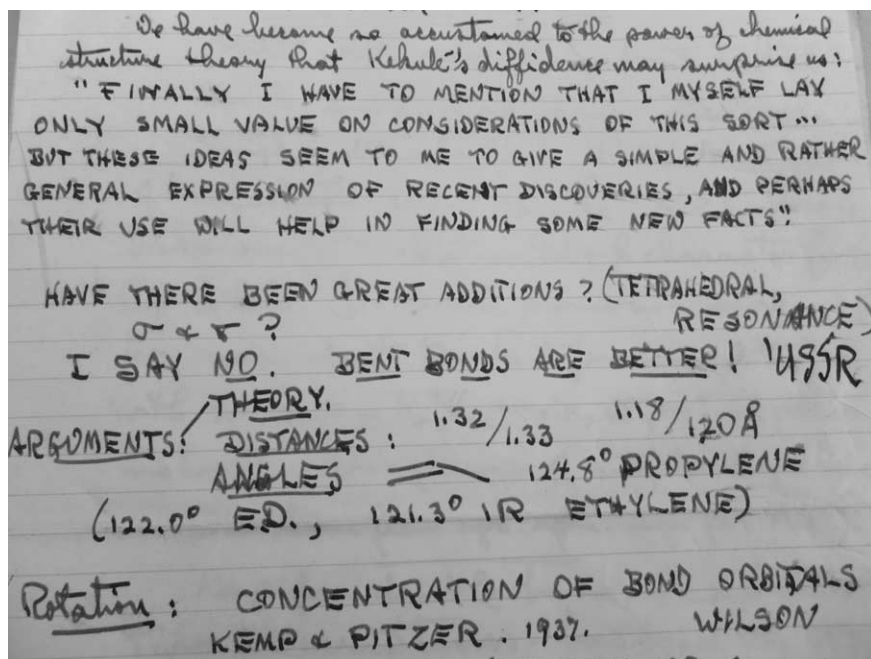 We have become so accustomed to the power of chemical
structure theory that Kekulé's diffidence may surprise us:
"FINALLY I HAVE TO MENTION THAT I MYSELF LAY
ONLY SMALL VALUE ON CONSIDERATIONS OF THIS SORT...
BUT THESE IDEAS SEEM TO ME TO GIVE A SIMPLE AND RATHER
GENERAL EXPRESSION OF RECENT DISCOVERIES, AND PERHAPS
THEIR USE WILL HELP IN FINDING SOME NEW FACTS".
HAVE THERE BEEN GREAT ADDITIONS? (TETRAHEDRAL,
RESONANCE)
σ & π?
I SAY NO. BENT BONDS ARE BETTER! 'USSR
THEORY.
ARGUMENTS: DISTANCES: 1.32/1.33 1.18/1.20 Å
ANGLES 124.8° PROPYLENE
(122.0° ED., 121.3° IR ETHYLENE)
Rotation: CONCENTRATION OF BOND ORBITALS
KEMP & PITZER. 1937. WILSON